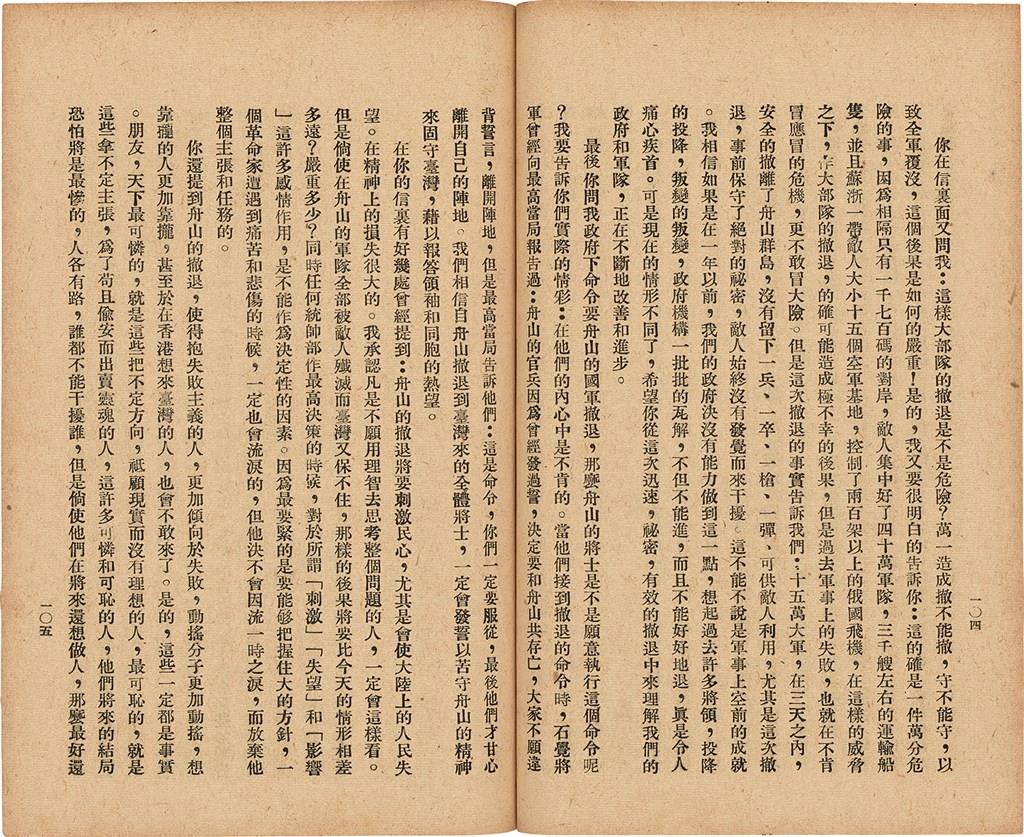 你在信裏面又問我：這樣大部隊的撤退是不是危險？萬一造成撤不能撤，守不能守，以
致全軍覆沒，這個後果是如何的嚴重！是的，我又要很明白的告訴你：這的確是一件萬分危
險的事，因爲相隔只有一千七百碼的對岸，敵人集中好了四十萬軍隊，三千艘左右的運輸船
隻，並且蘇浙一帶敵人大小十五個空軍基地，控制了兩百架以上的俄國飛機，在這樣的威脅
之下，作大部隊的撤退，的確可能造成極不幸的後果，但是過去軍事上的失敗，也就在不肯
冒應冒的危機，更不敢冒大險。但是這次撤退的事實告訴我們：十五萬大軍，在三天之內，
安全的撤離了舟山群島，沒有留下一兵、一卒、一槍、一彈、可供敵人利用，尤其是這次撤
退，事前保守了絕對的祕密，敵人始終沒有發覺而來干擾。這不能不說是軍事上空前的成就
。我相信如果是在一年以前，我們的政府決沒有能力做到這一點，想起過去許多將領，投降
的投降，叛變的叛變，政府機構一批批的瓦解，不但不能進，而且不能好好地退，眞是令人
痛心疾首。可是現在的情形不同了，希望你從這次迅速，祕密，有效的撤退中來理解我們的
政府和軍隊，正在不斷地改善和進步。
最後你問我政府下命令要舟山的國軍撤退，那麼舟山的將士是不是願意執行這個命令呢
？我要告訴你們實際的情形：在他們的內心中是不肯的。當他們接到撤退的命令時，石覺將
軍曾經向最高當局報告過：舟山的官兵因爲曾經發過誓，決定要和舟山共存亡，大家不願違
一〇四
背誓言，離開陣地，但是最高當局告訴他們：這是命令，你們一定要服從，最後他們才甘心
離開自己的陣地。我們相信自舟山撤退到臺灣來的全體將士，一定會發誓以苦守舟山的精神
來固守臺灣，藉以報答領袖和同胞的熱望。
在你的信裏有好幾處曾經提到：舟山的撤退將要刺激民心，尤其是會使大陸上的人民失
望。在精神上的損失很大的。我承認凡是不願用理智去思考整個問題的人，一定會這樣看。
但是倘使在舟山的軍隊全部被敵人殲滅而臺灣又保不住，那樣的後果將要比今天的情形相差
多遠？嚴重多少？同時任何統帥部作最高決策的時候，對於所謂「刺激」「失望」和「影響
」這許多感情作用，是不能作爲決定性的因素。因爲最要緊的是要能够把握住大的方針，一
個革命家遭遇到痛苦和悲傷的時候，一定也會流淚的，但他決不會因流一時之淚，而放棄他
整個主張和任務的。
你還提到舟山的撤退，使得抱失敗主義的人，更加傾向於失敗，動搖分子更加動搖，想
靠攏的人更加靠攏，甚至於在香港想來臺灣的人，也會不敢來了。是的，這些一定都是事實
。朋友，天下最可憐的，就是這些把不定方向，祗顧現實而沒有理想的人，最可恥的，就是
這些拿不定主張，爲了苟且偸安而出賣靈魂的人，這許多可憐和可恥的人，他們將來的結局
恐怕將是最慘的，人各有路，誰都不能干擾誰，但是倘使他們在將來還想做人，那麼最好還
一〇五